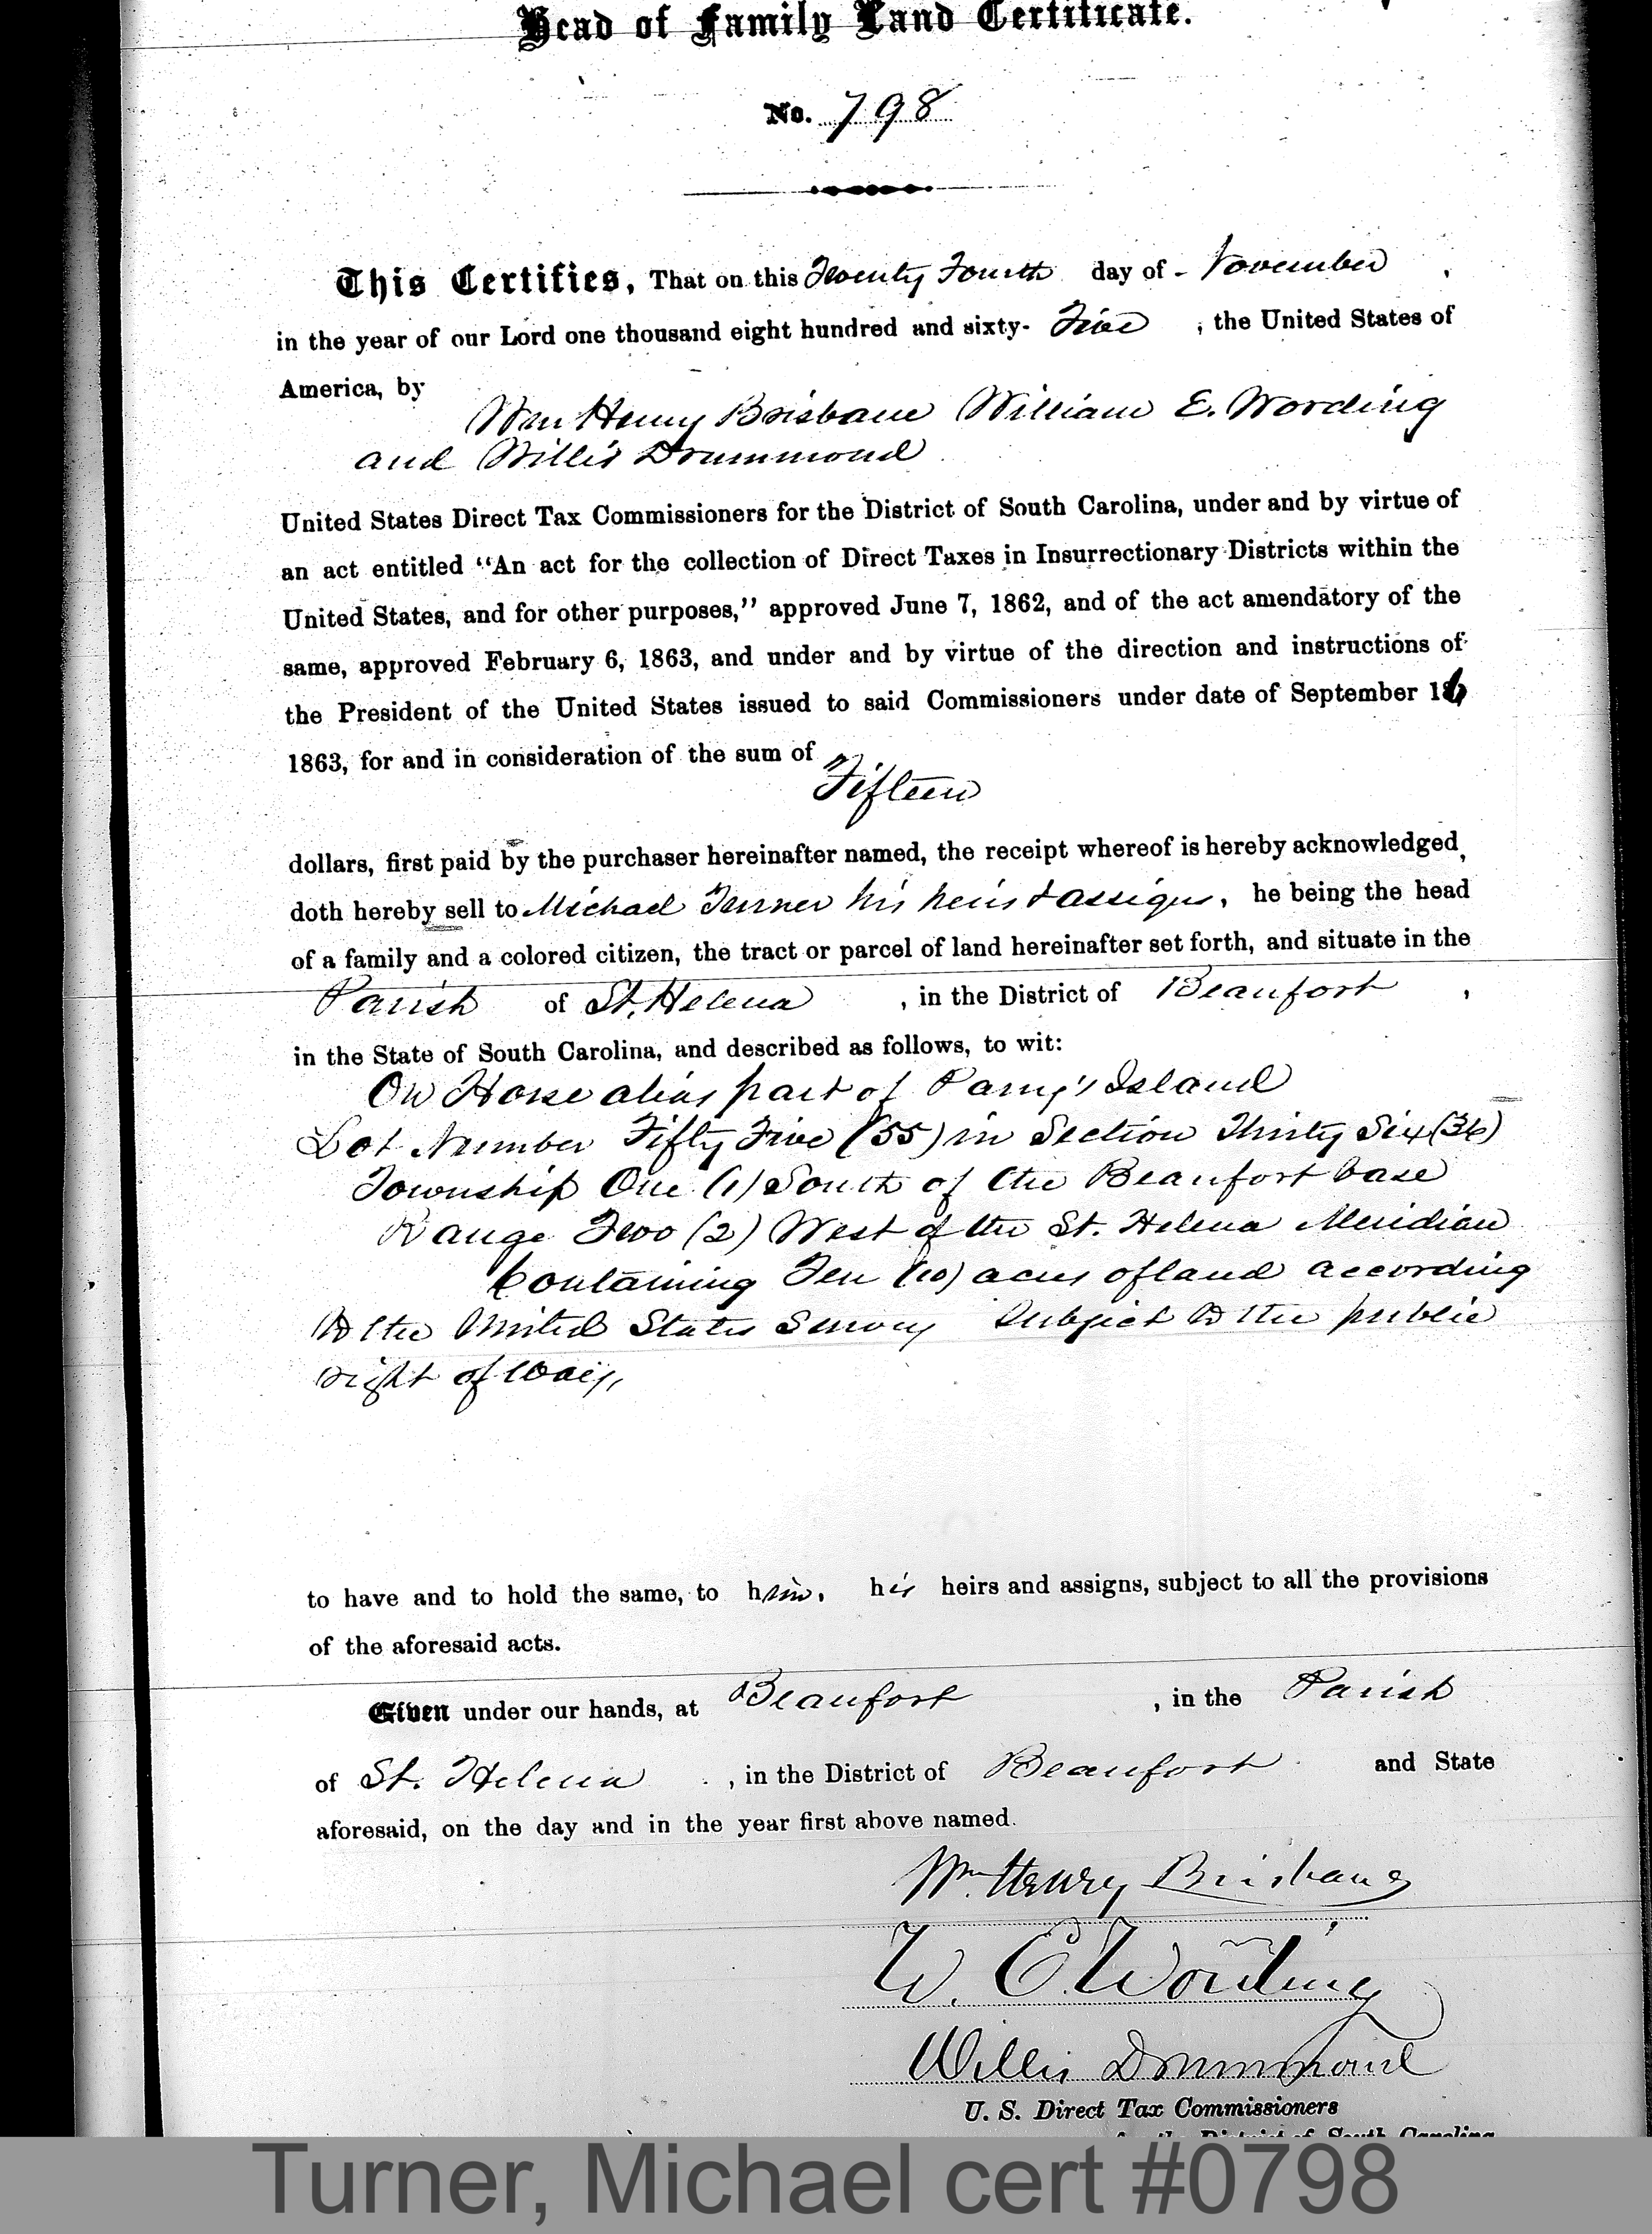 Head of Family Land Certificate.
No. 798
This Certifies, That on this Twenty Fourth day of November,
in the year of our Lord one thousand eight hundred and sixty-Five, the United States of
America, by
Wm Henry Brisbane William E. Wording
and Willis Drummond
United States Direct Tax Commissioners for the District of South Carolina, under and by virtue of
an act entitled "An act for the collection of Direct Taxes in Insurrectionary Districts within the
United States, and for other purposes," approved June 7, 1862, and of the act amendatory of the
same, approved February 6, 1863, and under and by virtue of the direction and instructions of
the President of the United States issued to said Commissioners under date of September 16
1863, for and in consideration of the sum of
Fifteen
dollars, first paid by the purchaser hereinafter named, the receipt whereof is hereby acknowledged,
doth hereby sell to Michael Turner his heirs & assigns, he being the head
of a family and a colored citizen, the tract or parcel of land hereinafter set forth, and situate in the
Parish of St. Helena, in the District of Beaufort,
in the State of South Carolina, and described as follows, to wit:
On Horse alias part of Parry's Island
Lot Number Fifty Five (55) in Section Thirty Six (36)
Township One (1) South of the Beaufort base
Range Two (2) West of the St. Helena Meridian
Containing Ten (10) acres of land according
to the United States Survey Subject to the public
right of way,
to have and to hold the same, to him, his heirs and assigns, subject to all the provisions
of the aforesaid acts.
Given under our hands, at Beaufort, in the Parish
of St. Helena, in the District of Beaufort and State
aforesaid, on the day and in the year first above named.
Wm. Henry Brisbane
W. E. Wording
Willis Drummond
U. S. Direct Tax Commissioners
for the District of South Carolina
Turner, Michael cert #0798